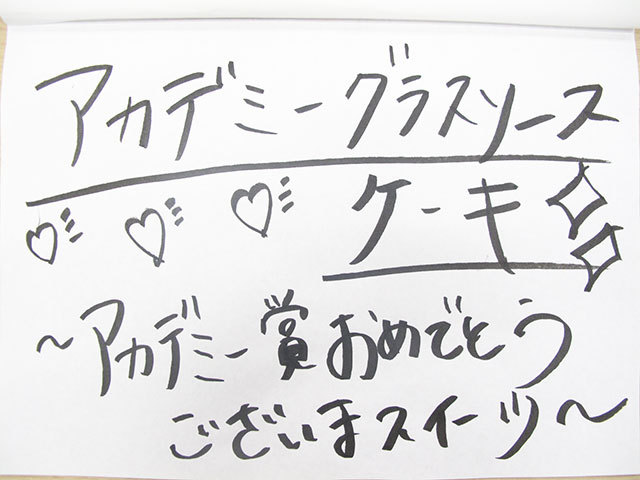 アカデミーグラスソース
ケーキ
～アカデミー賞おめでとう
ございまスイーツ～